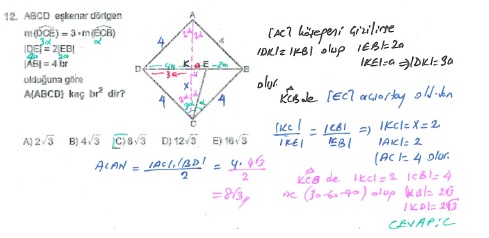 12. ABCD eşkenar dörtgen
m(DCE) = 3·m(ECB)
3α α
|DE| = 2|EB|
4a 2a
|AB| = 4 br
olduğuna göre
A(ABCD) kaç br² dir?
A
4 4
2α
D 4a K a E 2a B
3a
x
4 4
2α α
C
A) 2√3 B) 4√3 C) 8√3 D) 12√3 E) 16√3
ALAN = |AC|.|BD| / 2 = 4.4√3 / 2
= 8√3
[AC] köşegeni çizilirse
|DK|=|KB| olup |EB|=2a
|KE|=a ⇒ |DK|=3a
olur.
KCB de [EC] açıortay olduğundan
|KC| / |KE| = |CB| / |EB| ⇒ |KC|=x=2
|AK|=2
|AC|=4 olur.
KCB de |KC|=2 |CB|=4
(30-60-90) olup |KB|=2√3
|KD|=2√3
CEVAP: C